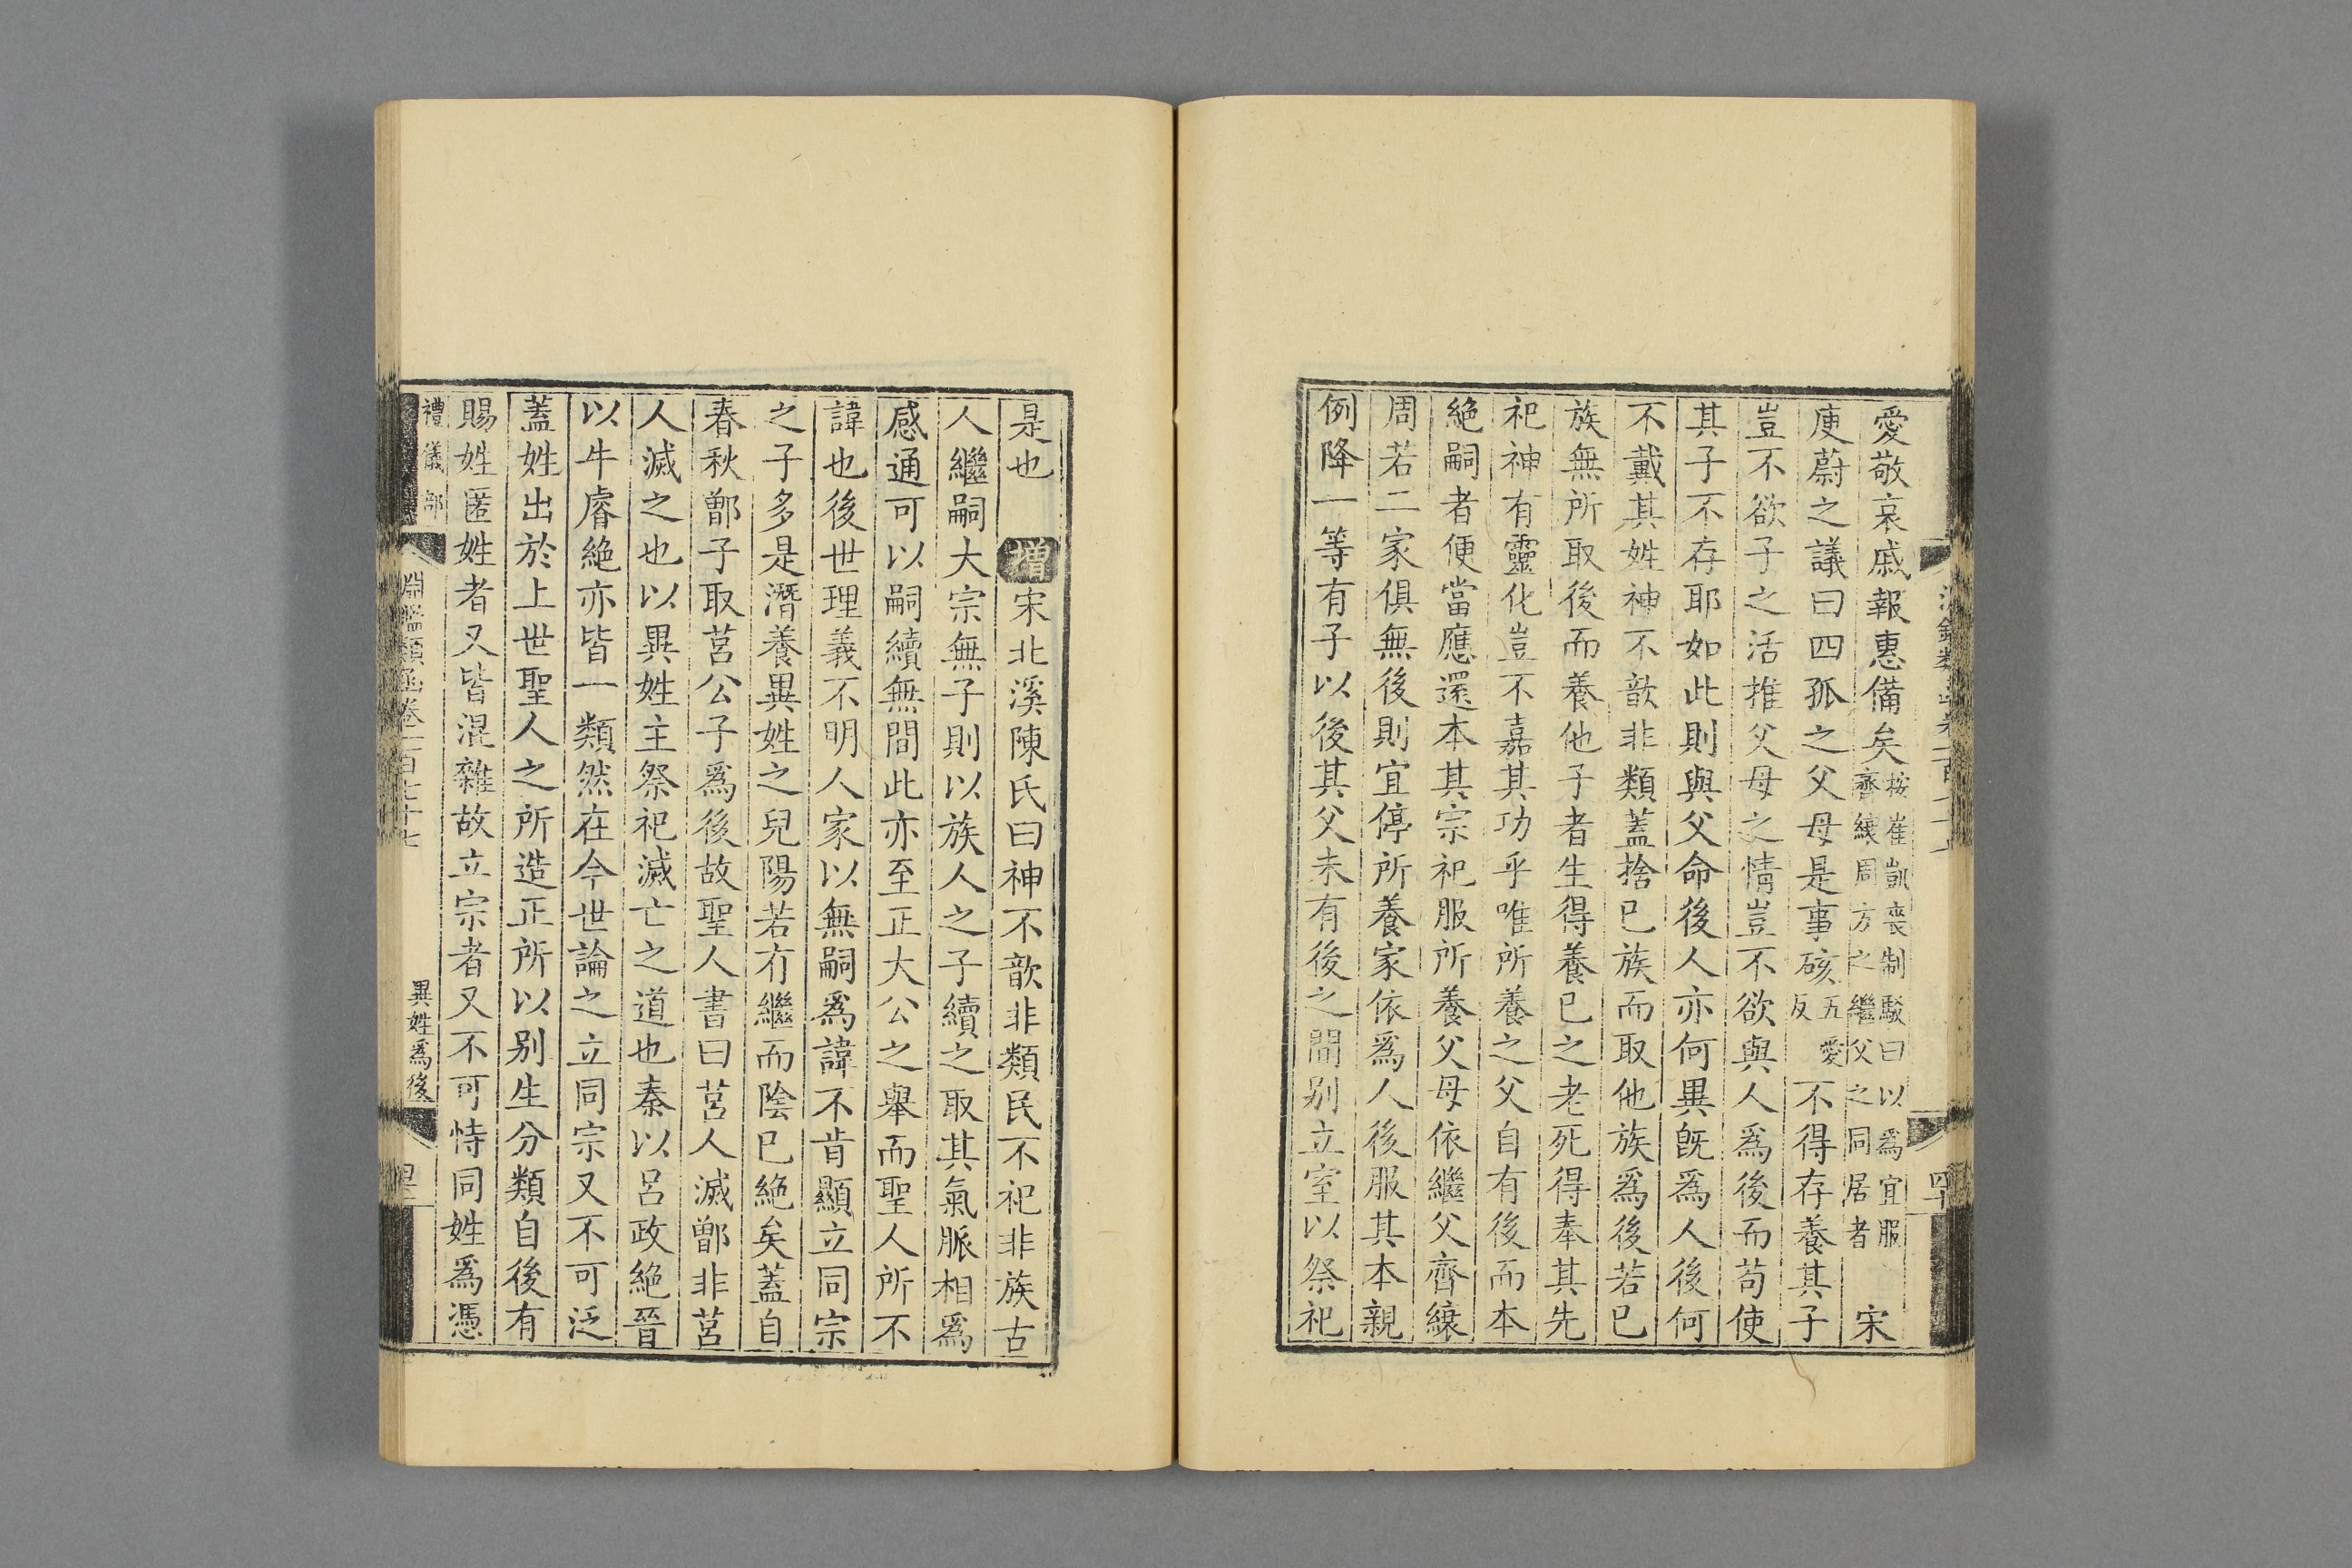 愛敬哀戚報惠備矣按崔凱喪制駁曰以爲宜服齊縗周方之繼父之同居者宋
庾蔚之議曰四孤之父母是事硋五愛反不得存養其子
豈不欲子之活推父母之情豈不欲與人爲後而苟使
其子不存耶如此則與父命後人亦何異旣爲人後何
不戴其姓神不歆非類蓋捨已族而取他族爲後若已
族無所取後而養他子者生得養已之老死得奉其先
祀神有靈化豈不嘉其功乎唯所養之父自有後而本
絶嗣者便當應還本其宗祀服所養父母依繼父齊縗
周若二家俱無後則宜停所養家依爲人後服其本親
例降一等有子以後其父未有後之間别立室以祭祀
是也 增宋北溪陳氏曰神不歆非類民不祀非族古
人繼嗣大宗無子則以族人之子續之取其氣脈相爲
感通可以嗣續無間此亦至正大公之舉而聖人所不
諱也後世理義不明人家以無嗣爲諱不肯顯立同宗
之子多是潛養異姓之兒陽若有繼而陰已絶矣蓋自
春秋鄫子取莒公子爲後故聖人書曰莒人滅鄫非莒
人滅之也以異姓主祭祀滅亡之道也秦以呂政絶晉
以牛睿絶亦皆一類然在今世論之立同宗又不可泛
蓋姓出於上世聖人之所造正所以别生分類自後有
賜姓匿姓者又皆混雜故立宗者又不可恃同姓爲憑
禮儀部
淵鑑類函卷一百七十七
異姓爲後